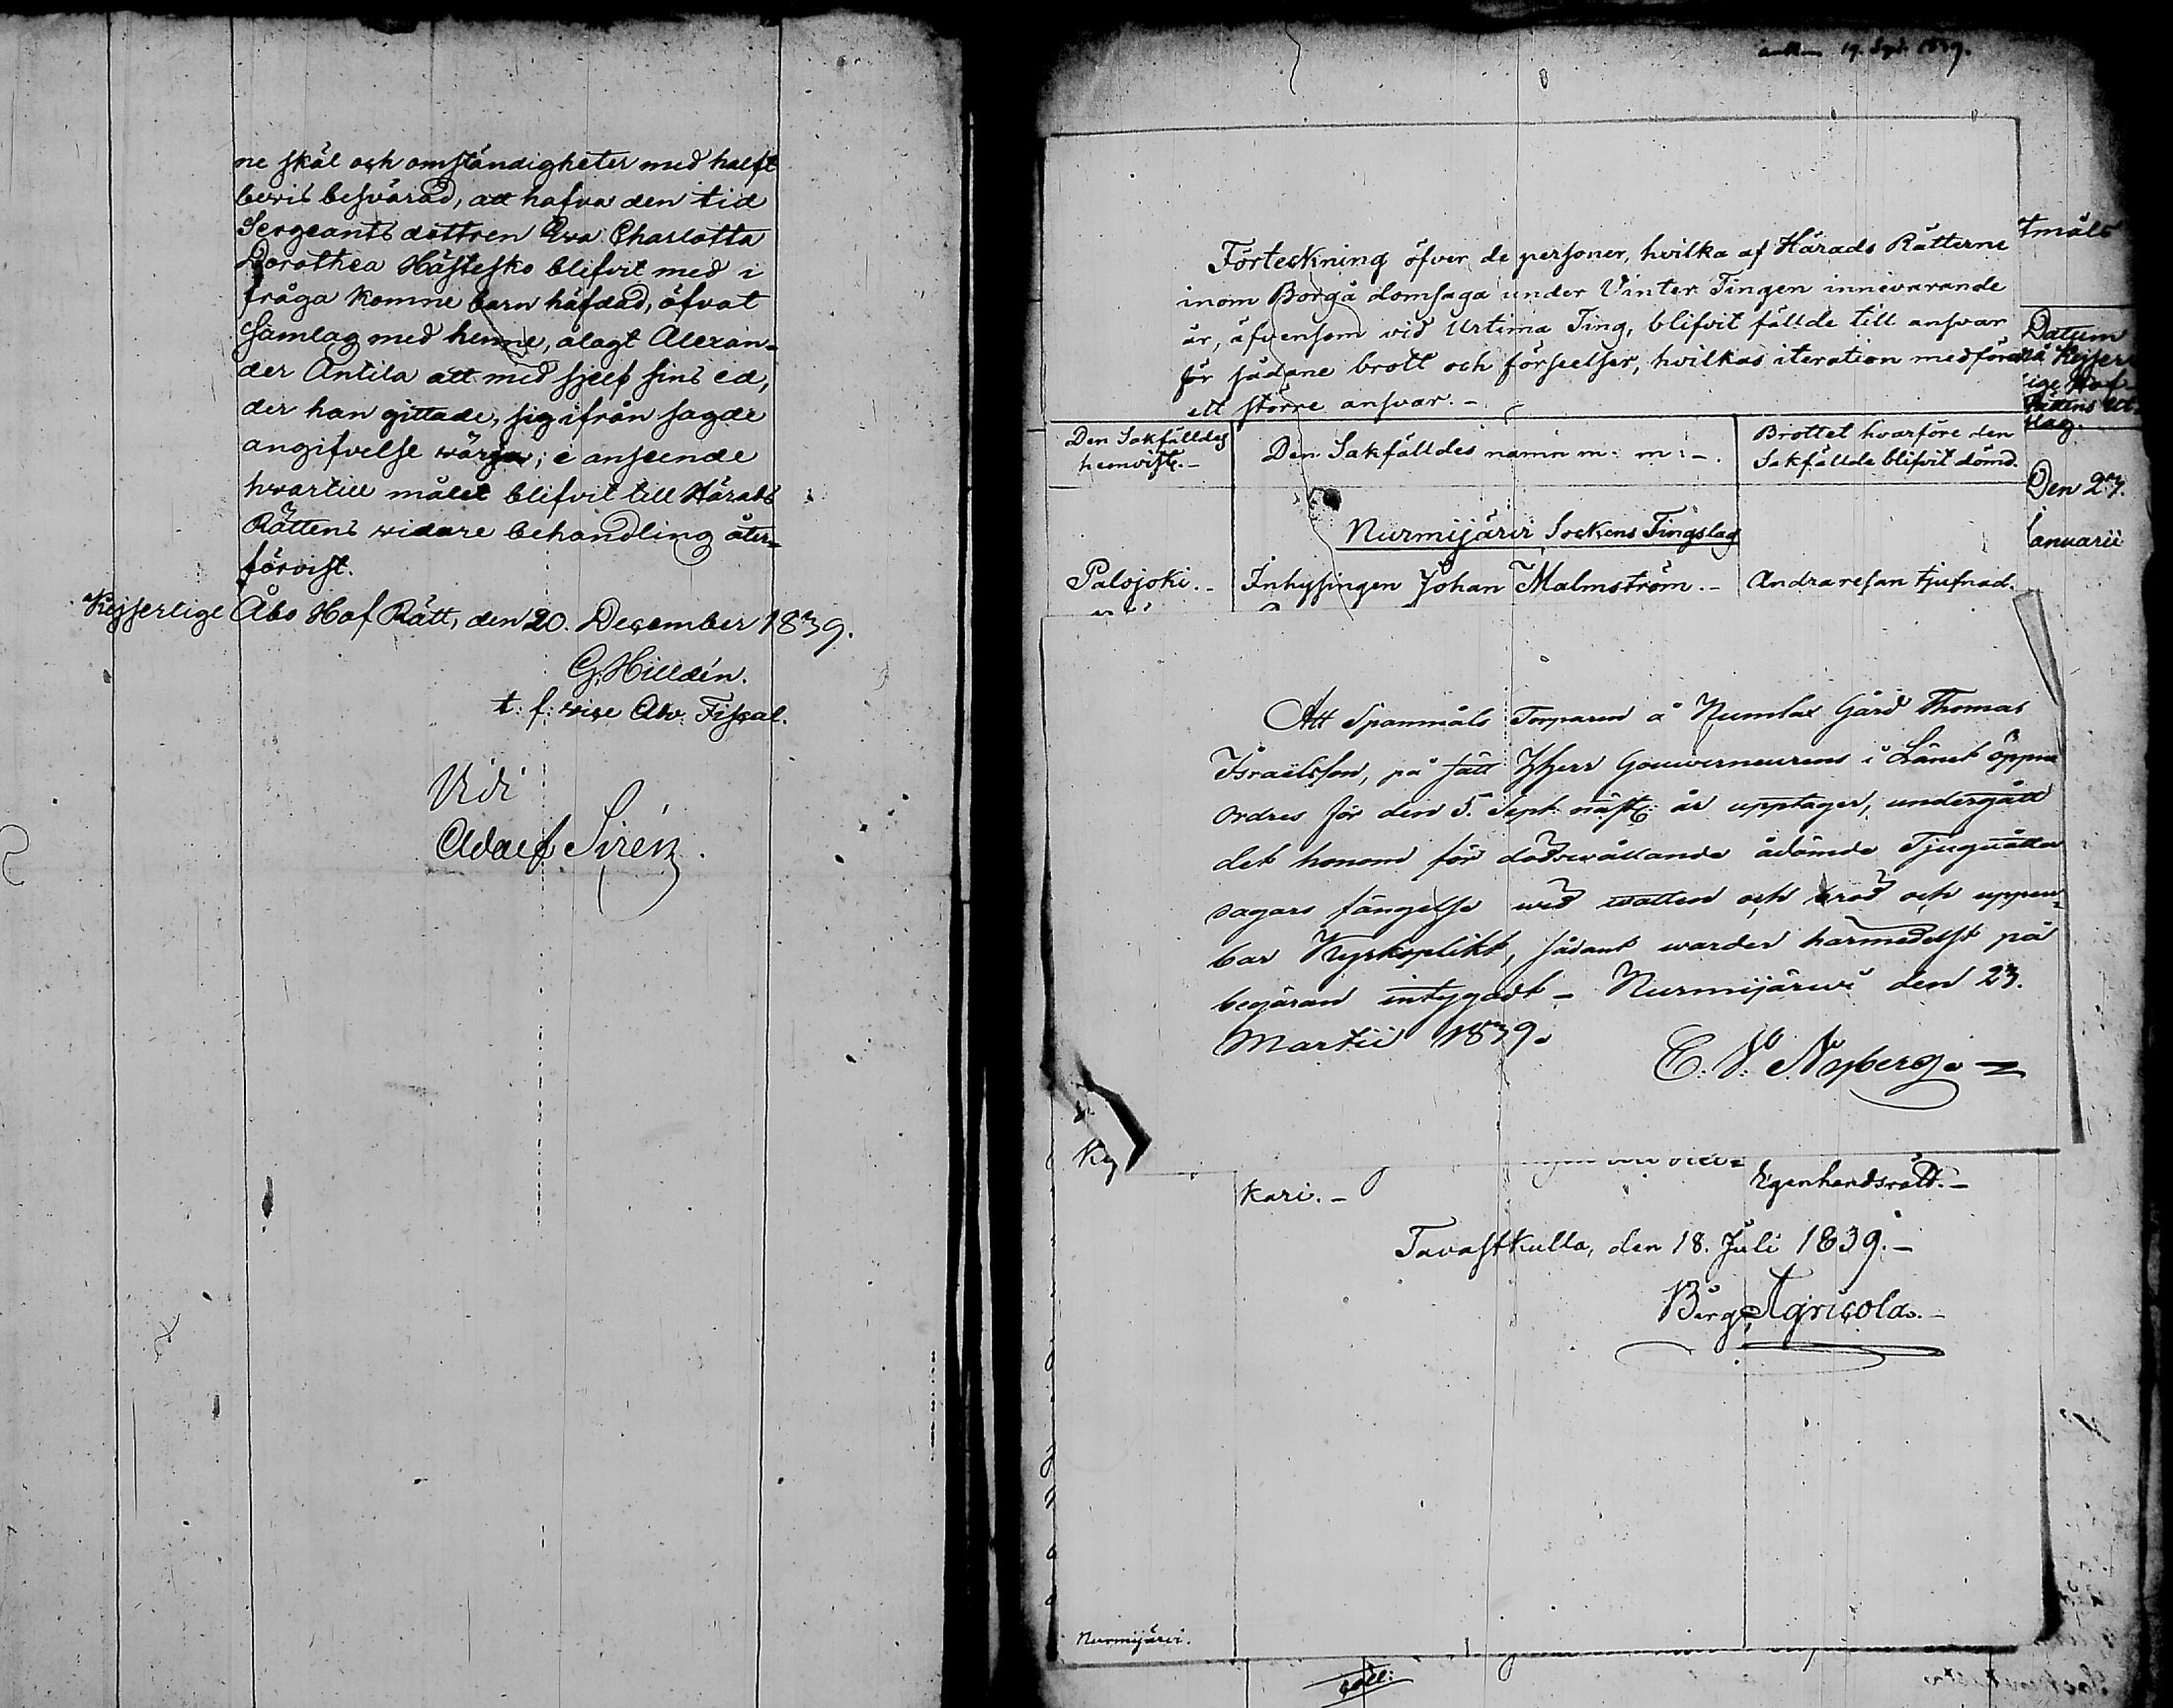 ne skäl och omständigheter med halft
bevis besvärad, att hafva den tid
Sergeants dottren Eva Charlotta
Dorothea Hästesko blifvit med i
fråga komne barn häfdad, öfvat
samlag med henne, ålagt Alexan-
der Antila att med sjelf sins ed,
der han gittade, sig ifrån sagde
angifvelse wärja; i anseende
hvartill målet blifvit till Härads
Rättens widare behandling åter-
förvist.
Kejserlige Åbo Hof Rätt, den 20. December 1839.
G. Hilldén.
t: f: vice Adv: Fiscal.
Vidi
Adolf Sirén.
19. Sept. 1839.
Förteckning öfver de personer, hvilka af Härads Rätterne
inom Borgå domsaga under Vinter Tingen innevarande
år, äfvensom vid Urtima Ting, blifvit fällde till ansvar
för sådane brott och förseelser, hvilkas iteration medföra
ett större ansvar. -
Den Sakfälldes
hemvist. -
Den Sakfälldes namn m: m: -
Brottet hvarföre den
Sakfällde blifvit dömd.
Nurmijärvi Sockens Tingslag
Palojoki. - Inhysingen Johan Malmström. - Andra resan tjufnad.
tmåls
Datum
å Kejser-
lige Hof-
Rättens Ut-
slag.
Den 27.
Januarii
Att Spanmåls Torparen å Numlax Gård Thomas
Israelsson, på sätt Herr Gouverneurens i Länet öppna
ordres för den 5. Sept. näst: år upptager, undergått
det honom för dödsvållande ådömde Tjuguåtta
dagars fängelse wid watten och bröd och uppen-
bar Kyrkoplikt, sådant warder härmedelst på
begäran intygadt - Nurmijärwi den 23.
Martii 1839.
C. V. Nyberg. -
Ky
kari. -
Egenhandsrätt. -
Tavastkulla, den 18. Juli 1839. -
Bergr Agricola. -
Nurmijärvi.
coll: